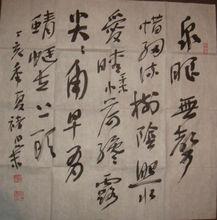 泉眼無聲
惜細流樹陰照水
愛晴柔小荷纔露
尖尖角早有
蜻蜓立上頭
丁亥季夏